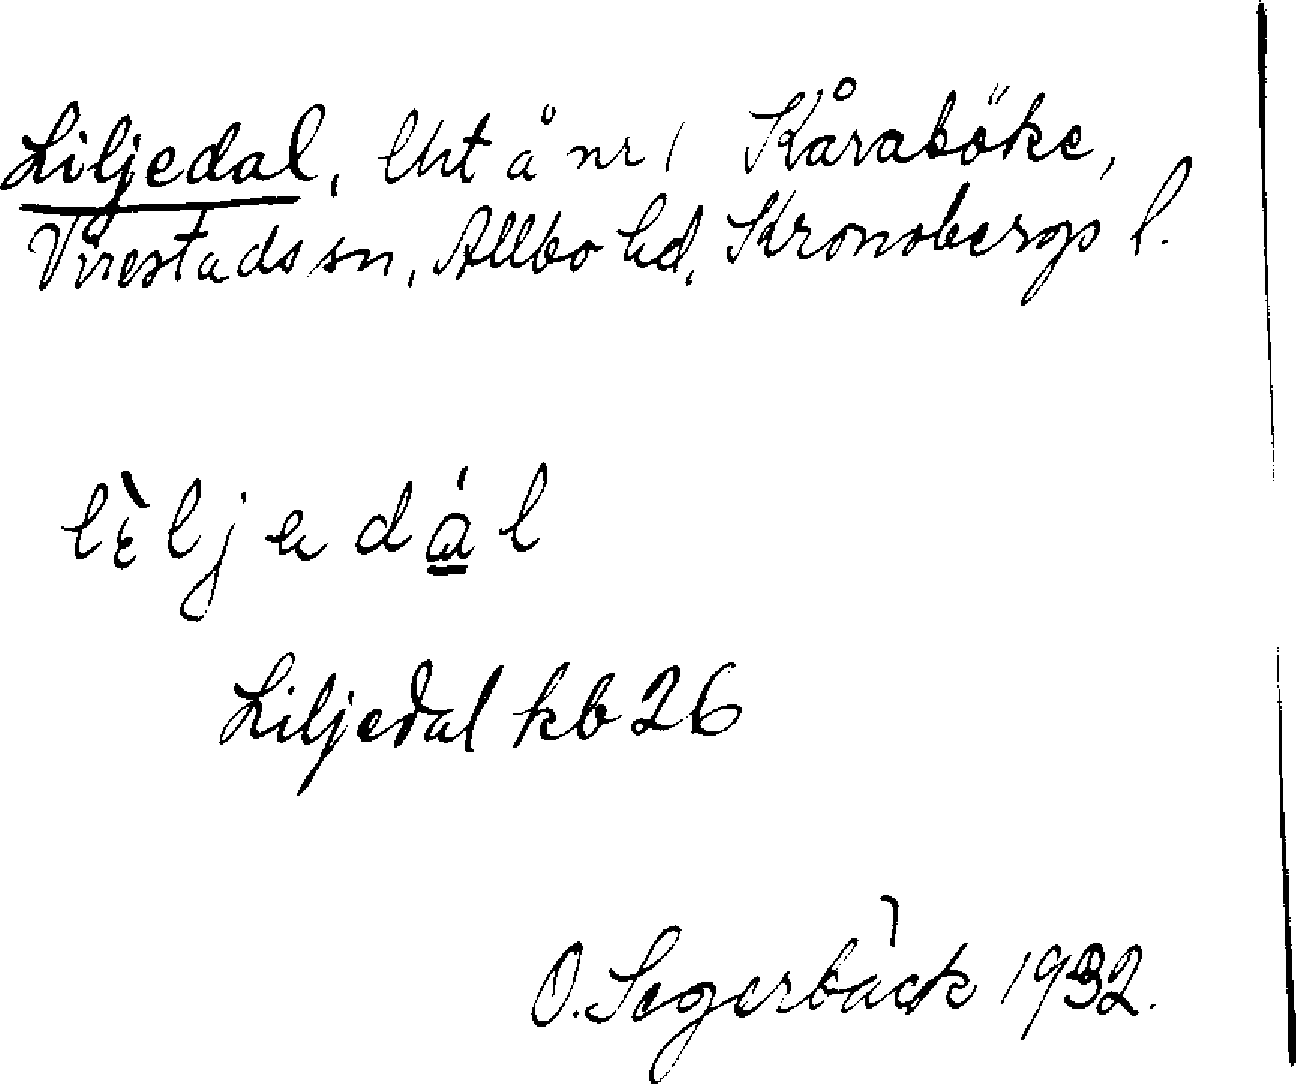 Liljedal, Lht å nr 1 Kåraböke,
Virestads sn, Allbo hd, Kronobergs l.
lɛ̀ljedál
Liljedal kb 26
O. Segerbäck 1932.